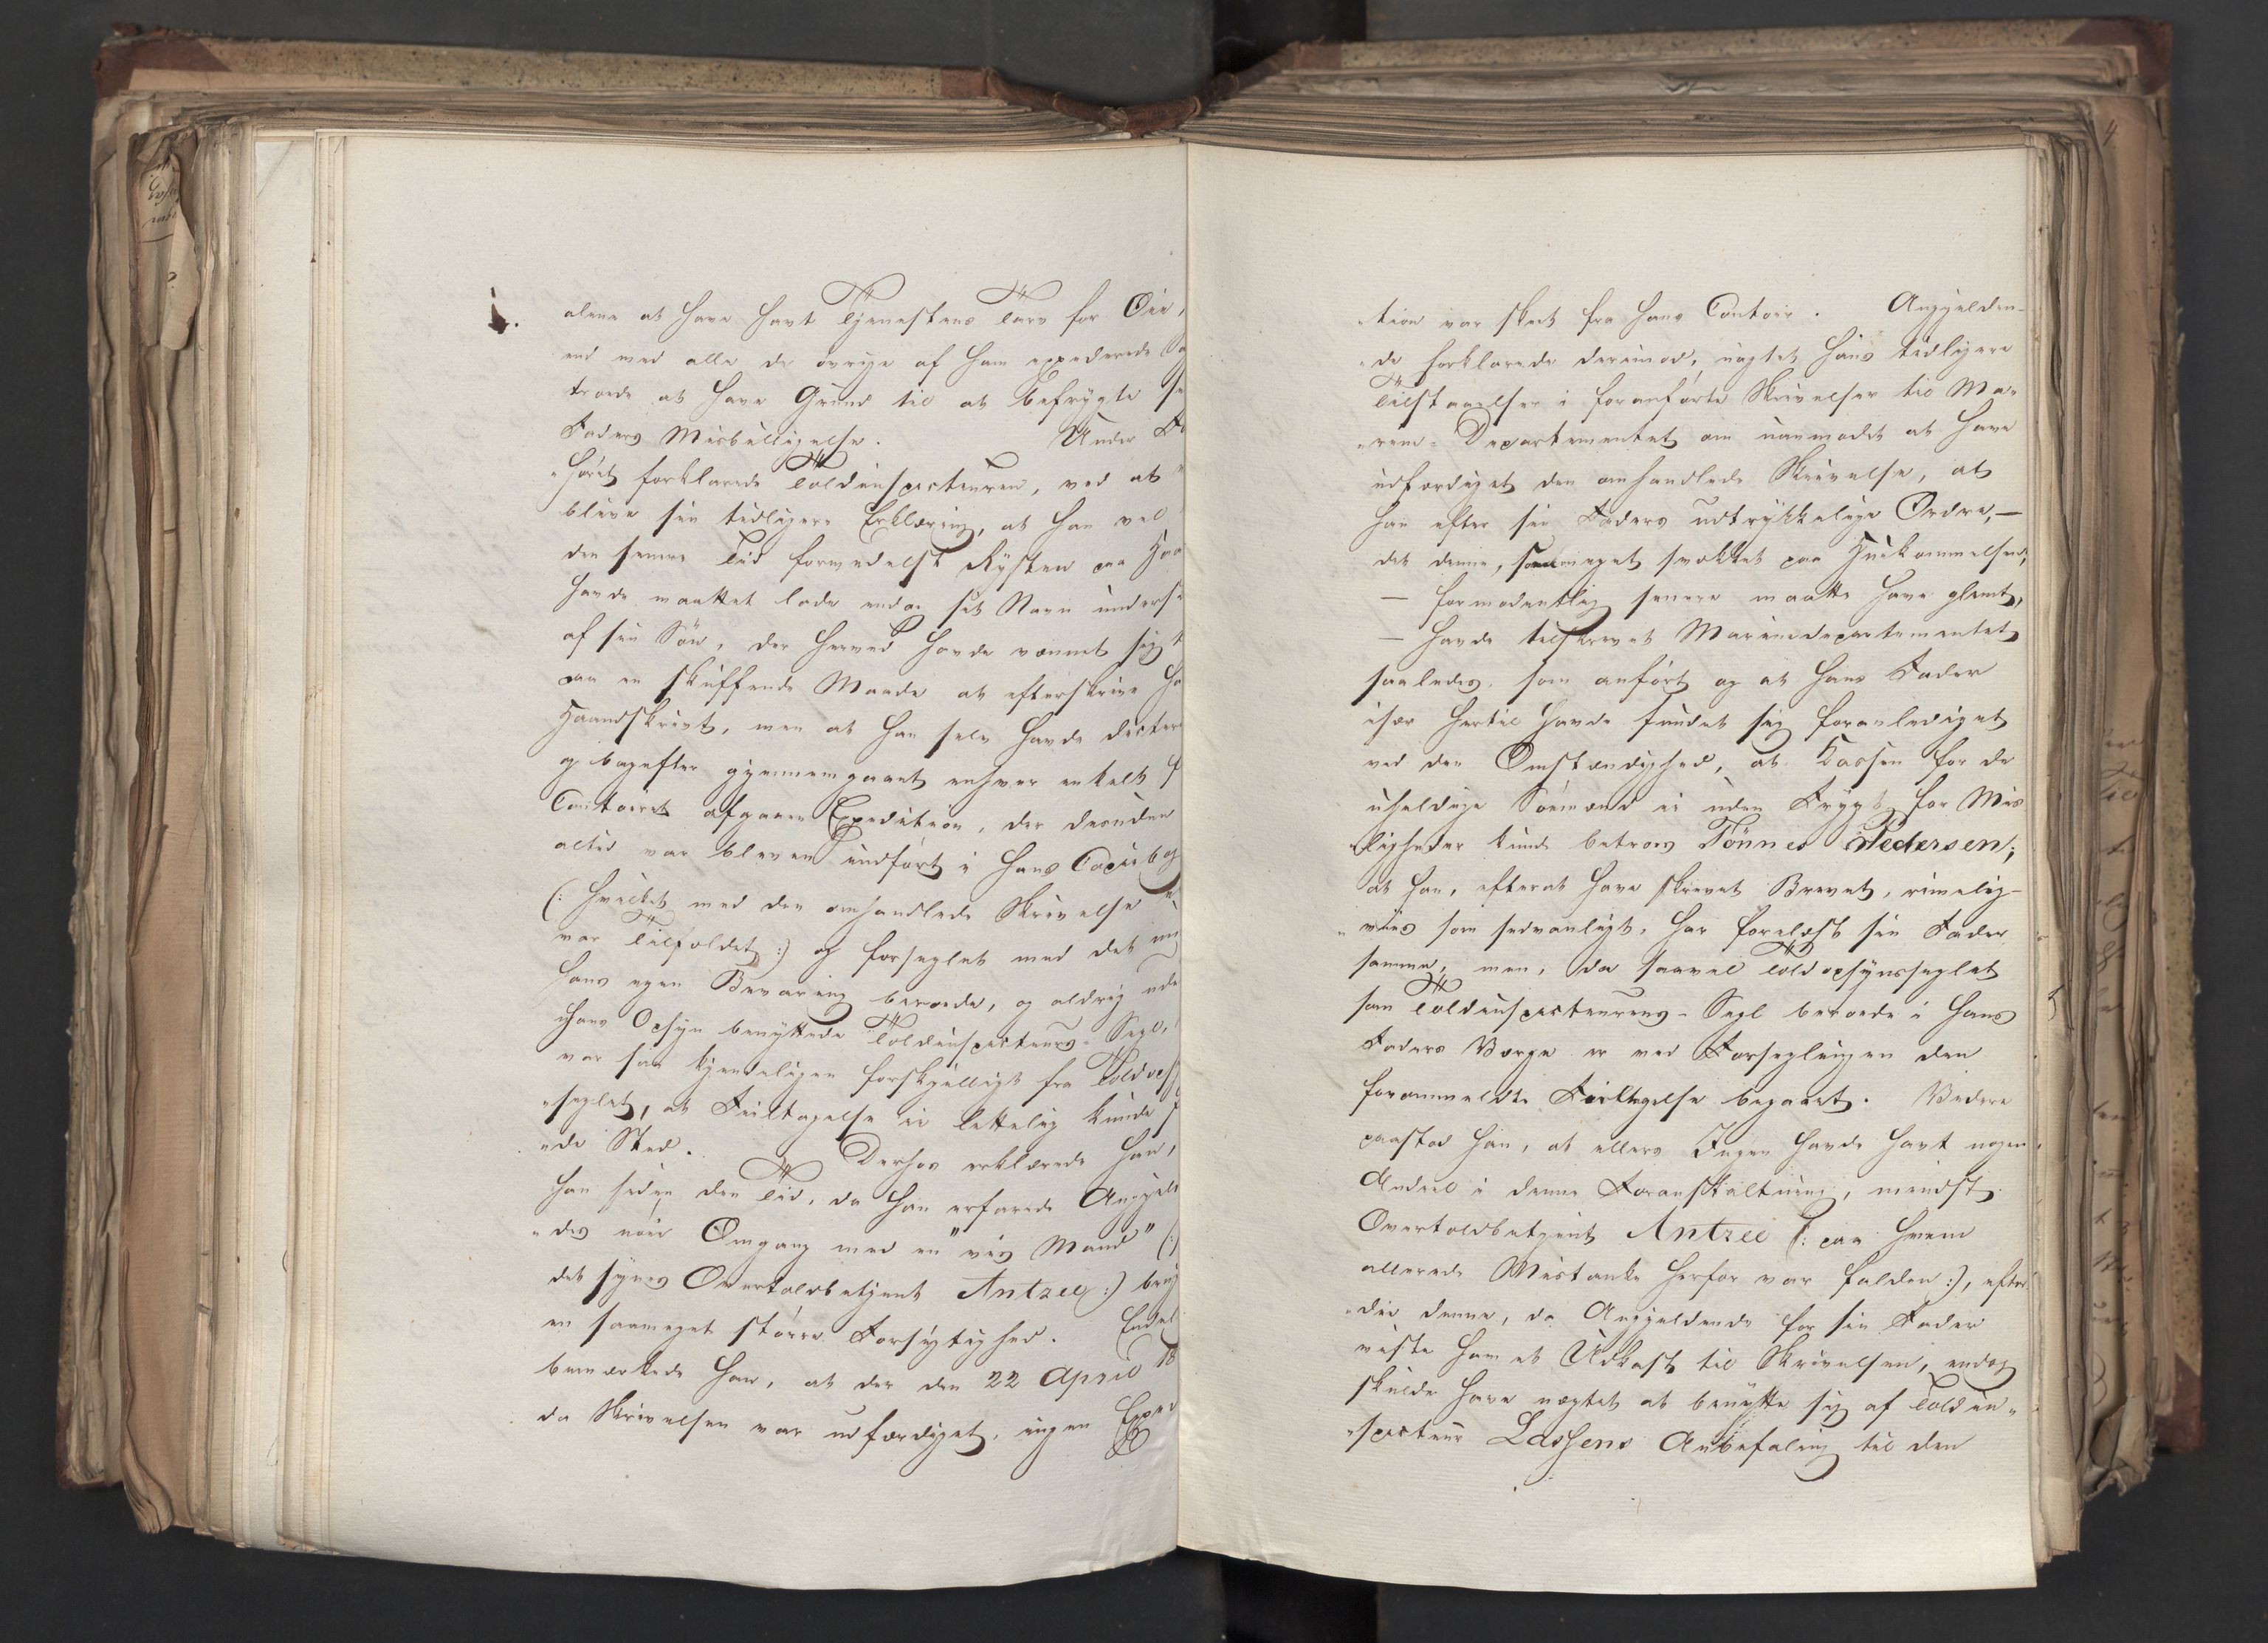 alene at have havt Tjenestens Tarv for Øie,
end med alle de øvrige af ham expederede Sa
troede at have Grund til at befrygte si
Faders Misbilligelse. Under Fo
"høret forklarede Toldinspecteuren, ved at
blive sin tidligere Erklæring, at han vel
den senere Tid formedelst Rysten paa Haa
havde maattet lade endog sit Navn underskr
af sin Søn, der herved havde vænnet sig t
paa en skuffende Maade at efterskrive ha
Haandskrivt, men at han selv havde dicter
og bagefter gjennemgaaet enhver enkelt f
Contoiret afgaaen Expedition, der desuden
altid var bleven indført i hans Copiebog
(: hvilket med den omhandlede Skrivelse ei
var Tilfældet :) og forseglet med det un
hans egen Bevaring beroede, og aldrig ude
hans Opsyn benyttede Toldinspecteurs-Segl,
var saa kjendeligen forskjelligt fra Toldops
"seglet, at Feiltagelse ei lettelig kunde f
"de Sted. Derhos erklærede han,
han siden den Tid, da han erfarede Angjeld
"des nøie Omgang med en "viis Mand" (:
det synes Overtoldbetjent Antzee :) brug
en saameget større Forsigtighed. Endel
bemærkede han, at der den 22 April 18
da Skrivelsen var udfærdiget, ingen Expe
"tion var skeet fra hans Contoir. Angjelden-
"de forklarede derimod, uagtet hans tidligere
Tilstaaelser i foranførte Skrivelser til Ma-
"rine-Departementet om uanmodet at have
udfærdiget den omhandlede Skrivelse, at
han efter sin Faders udtrykkelige Ordre, —
det denne, saameget svækket paa Hukommelsen,
— formodentlig senere maatte have glemt,
— havde tilskrevet Marinedepartementet
saaledes, som anført og at hans Fader
især hertil havde fundet sig foranlediget
ved den Omstændighed, at Kassen for de
uheldige Sømænd ei uden Frygt for Mis
"ligheder kunde betroes Tönnes Pedersen;
at han, efterat have skrevet Brevet, rimelig-
"viis som sedvanligt, har forelæst sin Fader
samme, men, da saavel Toldopsynsseglet
som Toldinspecteurens-Segl beroede i hans
Faders Værge er ved Forseglingen den
forommeldte Feiltagelse begaaet. Videre
paastod han, at ellers Ingen havde havt nogen
Andeel i denne Foranstaltning, mindst
Overtoldbetjent Antzee (: paa hvem
allerede Mistanke herfor var falden :), efter-
"di denne, da Angjeldende for sin Fader
viste ham et Udkast til Skrivelsen, endog
skulde have nægtet at benytte sig af Toldin-
"specteur Lassens Anbefaling til den